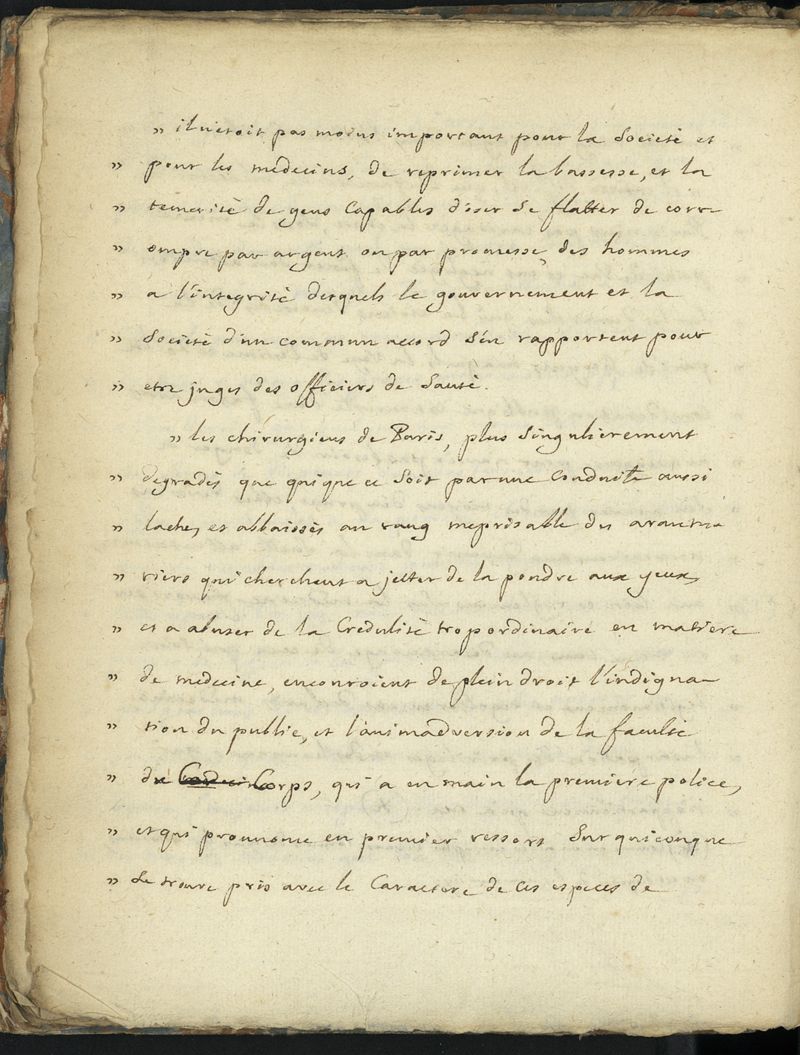 " il n'etoit pas moins important pour la Societé et
" pour les medecins, de reprimer la bassesse, et la
" temerité de gens Capables d'oser se flatter de corr-
" ompre par argent ou par promesse, des hommes
" a l'integrité desquels le gouvernement et la
" Societé d'un commun accord s'en rapportent pour
" etre juges des officiers de Santé.
" les chirurgiens de Paris, plus singulierement
" degradés que qui que ce soit par une Conduite aussi
" lache, et abbaissés au rang meprisable des avantu-
" riers qui cherchent a jetter de la poudre aux yeux,
" et a abuser de la Credulité trop ordinaire en matiere
" de medecine, encouroient de plein droit l'indigna-
" tion du public, et l'animadversion de la faculté
" du Corps, qui a en main la premiere police,
" et qui prononce en premier ressort sur quiconque
" se trouve pris avec le Caractere de ces especes de